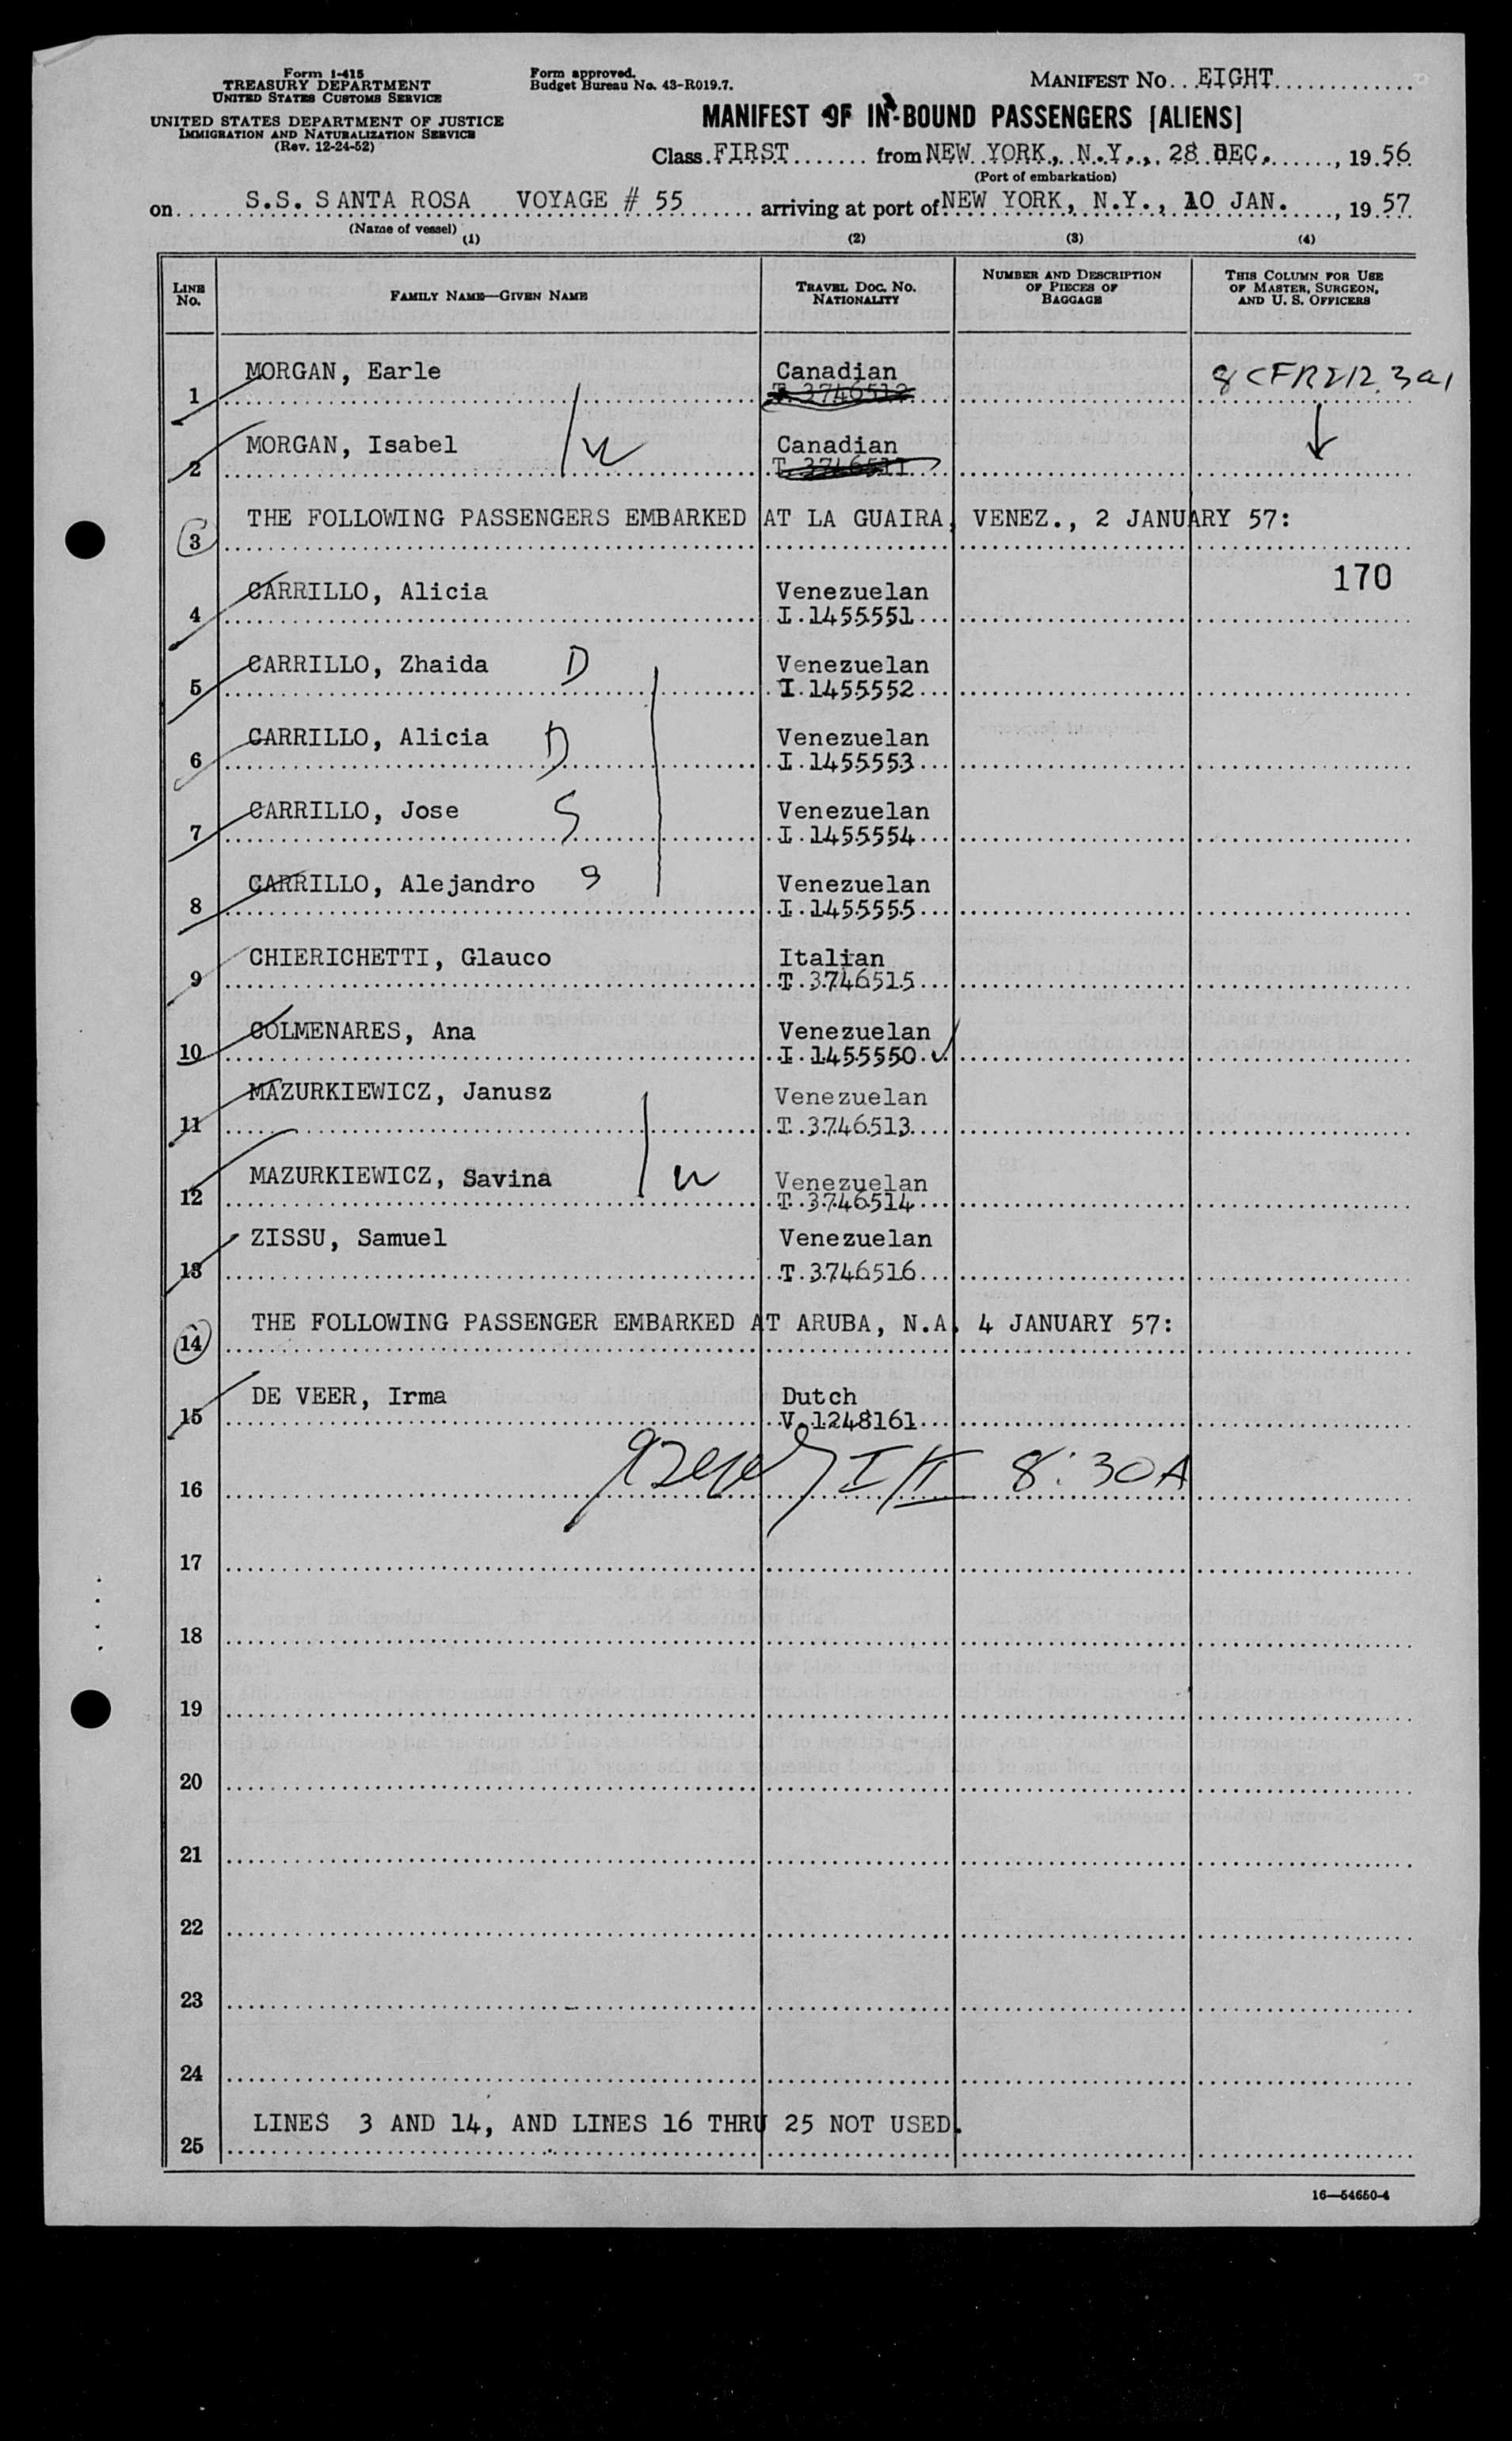 Form I-415
TREASURY DEPARTMENT
UNITED STATES CUSTOMS SERVICE
UNITED STATES DEPARTMENT OF JUSTICE
IMMIGRATION AND NATURALIZATION SERVICE
(Rev. 12-24-52)
Form approved.
Budget Bureau No. 43-R019.7.
MANIFEST No. EIGHT
MANIFEST OF IN-BOUND PASSENGERS [ALIENS]
Class FIRST from NEW YORK, N.Y., 28 DEC., 1956
(Port of embarkation)
on S.S. SANTA ROSA VOYAGE # 55 arriving at port of NEW YORK, N.Y., 10 JAN., 1957
(Name of vessel)
(1) (2) (3) (4)
LINE No. FAMILY NAME—GIVEN NAME TRAVEL DOC. NO. NATIONALITY NUMBER AND DESCRIPTION OF PIECES OF BAGGAGE THIS COLUMN FOR USE OF MASTER, SURGEON, AND U. S. OFFICERS
1 MORGAN, Earle Canadian
T. 3746512
2 MORGAN, Isabel W Canadian
T. 3746511
3 THE FOLLOWING PASSENGERS EMBARKED AT LA GUAIRA, VENEZ., 2 JANUARY 57:
170
4 CARRILLO, Alicia Venezuelan
I. 1455551
5 CARRILLO, Zhaida D Venezuelan
I. 1455552
6 CARRILLO, Alicia D Venezuelan
I. 1455553
7 CARRILLO, Jose S Venezuelan
I. 1455554
8 CARRILLO, Alejandro S Venezuelan
I. 1455555
9 CHIERICHETTI, Glauco Italian
T. 3746515
10 COLMENARES, Ana Venezuelan
I. 1455550
11 MAZURKIEWICZ, Janusz Venezuelan
T. 3746513
12 MAZURKIEWICZ, Savina W Venezuelan
T. 3746514
13 ZISSU, Samuel Venezuelan
T. 3746516
14 THE FOLLOWING PASSENGER EMBARKED AT ARUBA, N.A. 4 JANUARY 57:
15 DE VEER, Irma Dutch
V. 1248161
16 8:30A
17
18
19
20
21
22
23
24
25 LINES 3 AND 14, AND LINES 16 THRU 25 NOT USED.
16—54650-4